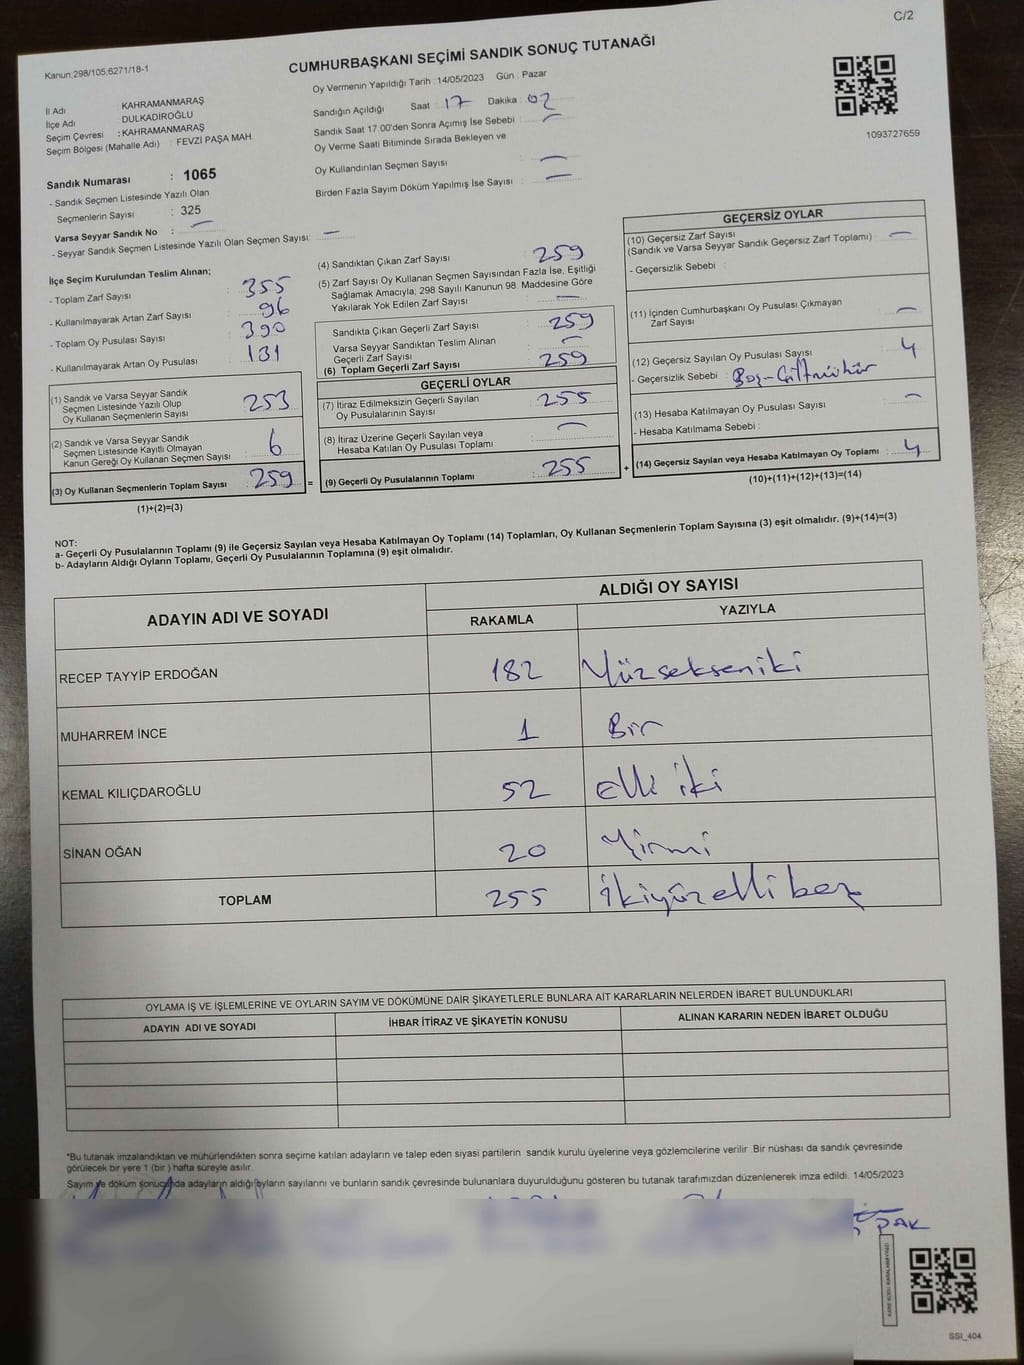 C/2
Kanun:298/105;6271/18-1
CUMHURBAŞKANI SEÇİMİ SANDIK SONUÇ TUTANAĞI
Oy Vermenin Yapıldığı Tarih : 14/05/2023 Gün : Pazar
İl Adı : KAHRAMANMARAŞ
İlçe Adı : DULKADİROĞLU
Seçim Çevresi : KAHRAMANMARAŞ
Seçim Bölgesi (Mahalle Adı) : FEVZİ PAŞA MAH.
Sandığın Açıldığı Saat : 17 Dakika : 02
Sandık Saat 17:00'den Sonra Açımış İse Sebebi : —
Oy Verme Saati Bitiminde Sırada Bekleyen ve
Oy Kullandırılan Seçmen Sayısı : —
Birden Fazla Sayım Döküm Yapılmış İse Sayısı : —
1093727659
Sandık Numarası : 1065
- Sandık Seçmen Listesinde Yazılı Olan
Seçmenlerin Sayısı : 325
Varsa Seyyar Sandık No : —
- Seyyar Sandık Seçmen Listesinde Yazılı Olan Seçmen Sayısı: —
İlçe Seçim Kurulundan Teslim Alınan;
- Toplam Zarf Sayısı : 355
- Kullanılmayarak Artan Zarf Sayısı : 96
- Toplam Oy Pusulası Sayısı : 390
- Kullanılmayarak Artan Oy Pusulası : 131
(1) Sandık ve Varsa Seyyar Sandık
Seçmen Listesinde Yazılı Olup
Oy Kullanan Seçmenlerin Sayısı : 253
(2) Sandık ve Varsa Seyyar Sandık
Seçmen Listesinde Kayıtlı Olmayan
Kanun Gereği Oy Kullanan Seçmen Sayısı : 6
(3) Oy Kullanan Seçmenlerin Toplam Sayısı : 259 =
(1)+(2)=(3)
(4) Sandıktan Çıkan Zarf Sayısı : 259
(5) Zarf Sayısı Oy Kullanan Seçmen Sayısından Fazla İse, Eşitliği
Sağlamak Amacıyla; 298 Sayılı Kanunun 98. Maddesine Göre
Yakılarak Yok Edilen Zarf Sayısı : —
Sandıkta Çıkan Geçerli Zarf Sayısı : 259
Varsa Seyyar Sandıktan Teslim Alınan
Geçerli Zarf Sayısı : —
(6) Toplam Geçerli Zarf Sayısı : 259
GEÇERLİ OYLAR
(7) İtiraz Edilmeksizin Geçerli Sayılan
Oy Pusulalarının Sayısı : 255
(8) İtiraz Üzerine Geçerli Sayılan veya
Hesaba Katılan Oy Pusulası Toplamı : —
(9) Geçerli Oy Pusulalarının Toplamı : 255 +
GEÇERSİZ OYLAR
(10) Geçersiz Zarf Sayısı
(Sandık ve Varsa Seyyar Sandık Geçersiz Zarf Toplamı) : —
- Geçersizlik Sebebi :
(11) İçinden Cumhurbaşkanı Oy Pusulası Çıkmayan
Zarf Sayısı : —
(12) Geçersiz Sayılan Oy Pusulası Sayısı : 4
- Geçersizlik Sebebi : Boş-Çiftmühür
(13) Hesaba Katılmayan Oy Pusulası Sayısı : —
- Hesaba Katılmama Sebebi :
(14) Geçersiz Sayılan veya Hesaba Katılmayan Oy Toplamı : 4
(10)+(11)+(12)+(13)=(14)
NOT:
a- Geçerli Oy Pusulalarının Toplamı (9) ile Geçersiz Sayılan veya Hesaba Katılmayan Oy Toplamı (14) Toplamları, Oy Kullanan Seçmenlerin Toplam Sayısına (3) eşit olmalıdır. (9)+(14)=(3)
b- Adayların Aldığı Oyların Toplamı, Geçerli Oy Pusulalarının Toplamına (9) eşit olmalıdır.
ADAYIN ADI VE SOYADI ALDIĞI OY SAYISI
RAKAMLA YAZIYLA
RECEP TAYYİP ERDOĞAN 182 Yüzsekseniki
MUHARREM İNCE 1 Bir
KEMAL KILIÇDAROĞLU 52 Elli iki
SİNAN OĞAN 20 Yirmi
TOPLAM 255 İkiyüzellibeş
OYLAMA İŞ VE İŞLEMLERİNE VE OYLARIN SAYIM VE DÖKÜMÜNE DAİR ŞİKAYETLERLE BUNLARA AİT KARARLARIN NELERDEN İBARET BULUNDUKLARI
ADAYIN ADI VE SOYADI İHBAR İTİRAZ VE ŞİKAYETİN KONUSU ALINAN KARARIN NEDEN İBARET OLDUĞU
"Bu tutanak imzalandıktan ve mühürlendikten sonra seçime katılan adayların ve talep eden siyasi partilerin sandık kurulu üyelerine veya gözlemcilerine verilir. Bir nüshası da sandık çevresinde
görülecek bir yere 1 (bir ) hafta süreyle asılır.
Sayım ve döküm sonucunda adayların aldığı oyların sayılarını ve bunların sandık çevresinde bulunanlara duyurulduğunu gösteren bu tutanak tarafımızdan düzenlenerek imza edildi. 14/05/2023
SSİ_404